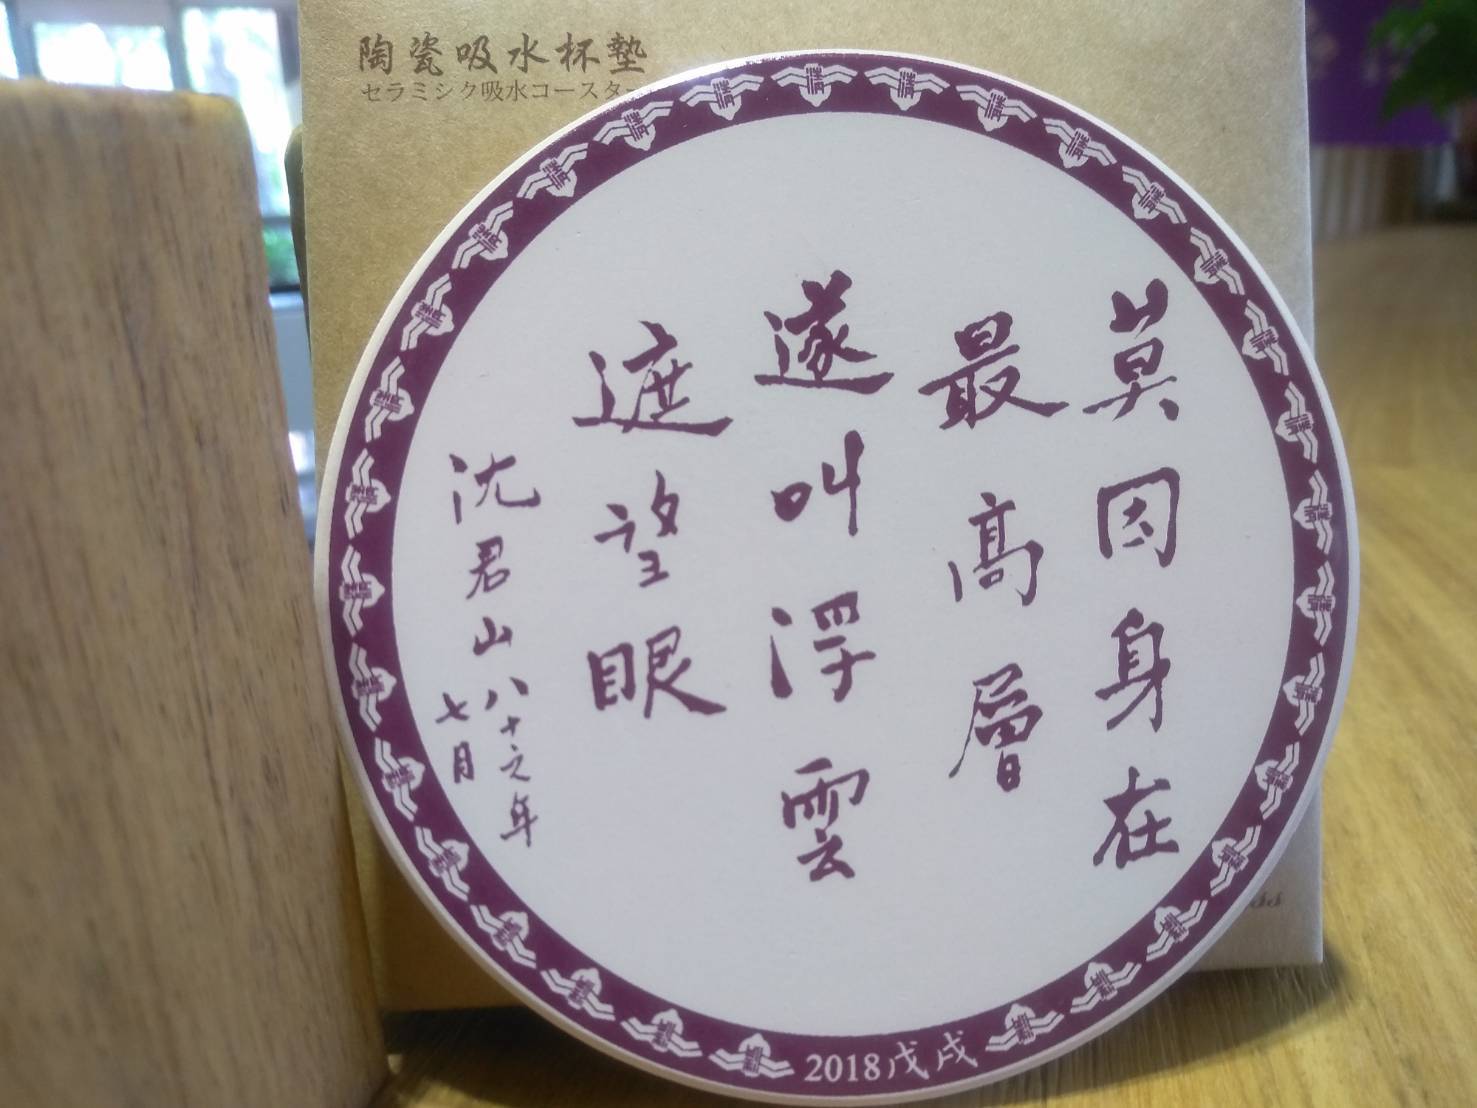 陶瓷吸水杯墊
セラミシク吸水コースター
莫因身在
最高層
遂叫浮雲
遮望眼
沈君山八十之年
七月
2018戊戌